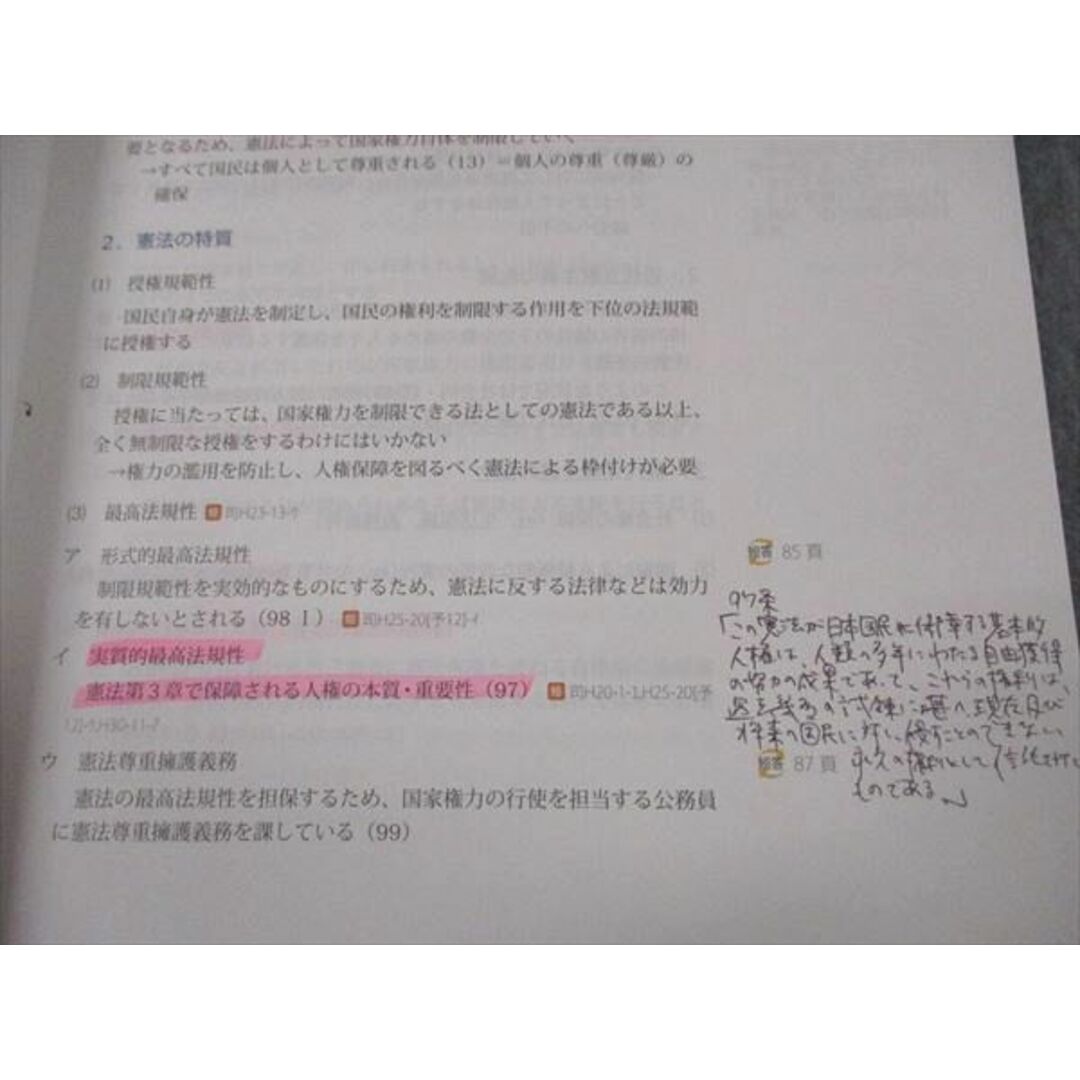 要となるため、憲法によって国家権力自体を制限していく
→すべて国民は個人として尊重される（13）＝個人の尊重（尊厳）の
確保
2．憲法の特質
(1) 授権規範性
国民自身が憲法を制定し、国民の権利を制限する作用を下位の法規範
に授権する
(2) 制限規範性
授権に当たっては、国家権力を制限できる法としての憲法である以上、
全く無制限な授権をするわけにはいかない
→権力の濫用を防止し、人権保障を図るべく憲法による枠付けが必要
(3) 最高法規性 司H23-13-ウ
ア 形式的最高法規性
制限規範性を実効的なものにするため、憲法に反する法律などは効力
を有しないとされる（98Ⅰ） 司H25-20[予12]-イ
イ 実質的最高法規性
憲法第3章で保障される人権の本質・重要性（97） 司H20-1-1,H25-20[予
12]-ｱ,H30-11-ｱ
ウ 憲法尊重擁護義務
憲法の最高法規性を担保するため、国家権力の行使を担当する公務員
に憲法尊重擁護義務を課している（99）
短答 85頁
97条
「この憲法が日本国民に保障する基本的
人権は、人類の多年にわたる自由獲得
の努力の成果であって、これらの権利は、
過去幾多の試錬に堪へ、現在及び
将来の国民に対し、侵すことのできない
短答 87頁
永久の権利として
ものである。」